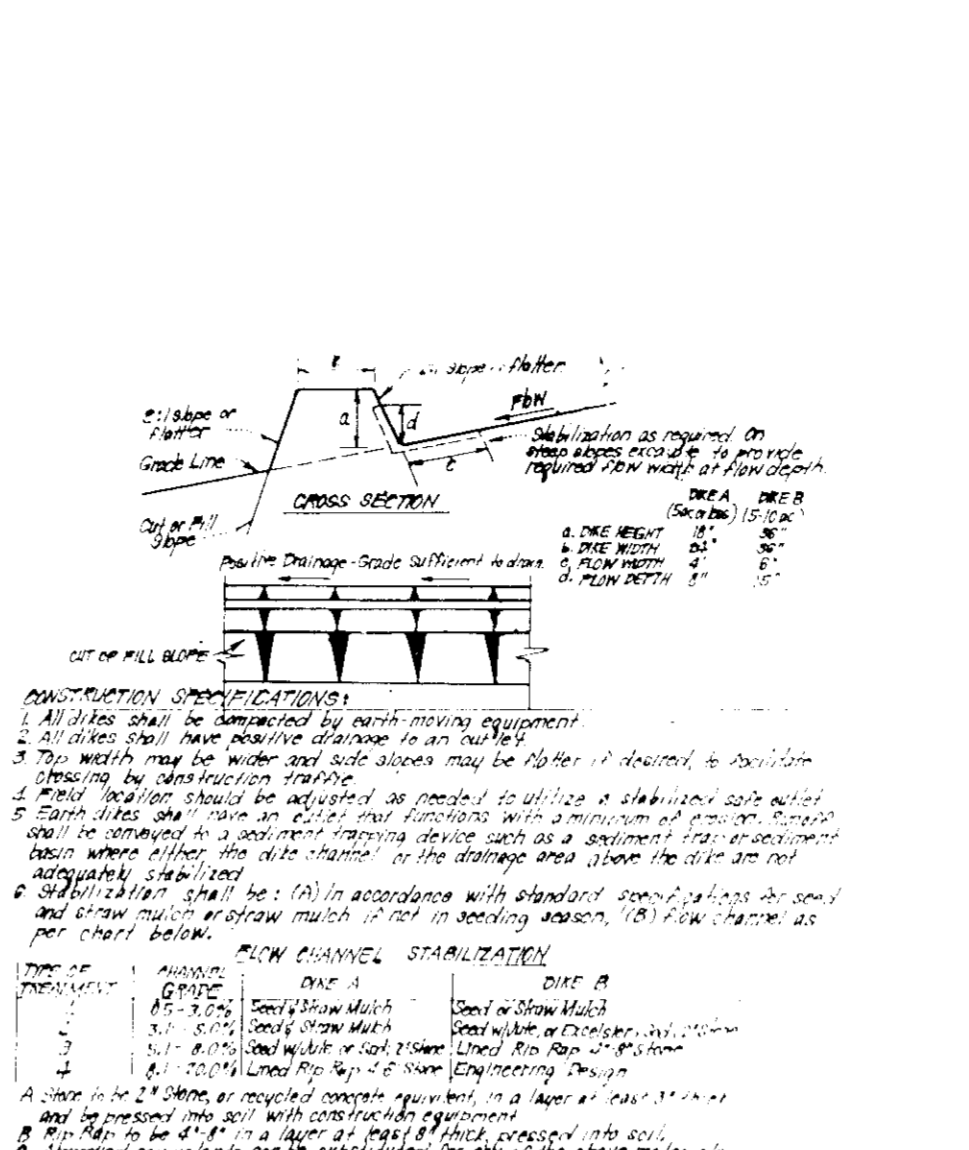 slope
flatter.
a
d
Flow
2:1 slope or
flatter
Stabilization as required. On
steep slopes excavate to provide
required flow width at flow depth.
Grade Line
c
CROSS SECTION
Cut or Fill
Slope
DIKE A DIKE B
(5ac or less) (5-10 ac)
a. DIKE HEIGHT 18" 36"
b. DIKE WIDTH 36"
c. FLOW WIDTH 4' 6'
d. FLOW DEPTH 8" 15"
Positive Drainage-Grade Sufficient to drain.
CUT OR FILL SLOPE
CONSTRUCTION SPECIFICATIONS:
1. All dikes shall be compacted by earth-moving equipment.
2. All dikes shall have positive drainage to an outlet.
3. Top width may be wider and side slopes may be flatter if desired, to facilitate
crossing by construction traffic.
4 Field location should be adjusted as needed to utilize a stabilized safe outlet
5 Earth dikes shall have an outlet that functions with a minimum of erosion. Runoff
shall be conveyed to a sediment trapping device such as a sediment trap or sediment
basin where either the dike channel or the drainage area above the dike are not
adequately stabilized
6. Stabilization shall be: (A) In accordance with standard specifications for seed
and straw mulch or straw mulch if not in seeding season, (B) flow channel as
per chart below.
FLOW CHANNEL STABILIZATION
TYPE OF CHANNEL
TREATMENT GRADE DIKE A DIKE B
1 0.5-3.0% Seed & Straw Mulch Seed or Straw Mulch
2 3.1-5.0% Seed & Straw Mulch Seed w/Jute, or Excelsior; Sod; 2" Stone
3 5.1-8.0% Seed w/Jute or Sod; 2" Stone Lined Rip Rap 4"-8" Stone
4 8.1-20.0% Lined Rip Rap Stone Engineering Design
A Stone to be 2" Stone, or recycled concrete equivalent, in a layer at least 3" thick
and be pressed into soil with construction equipment
B Rip Rap to be 4"-8" in a layer at least 8" thick, pressed into soil.